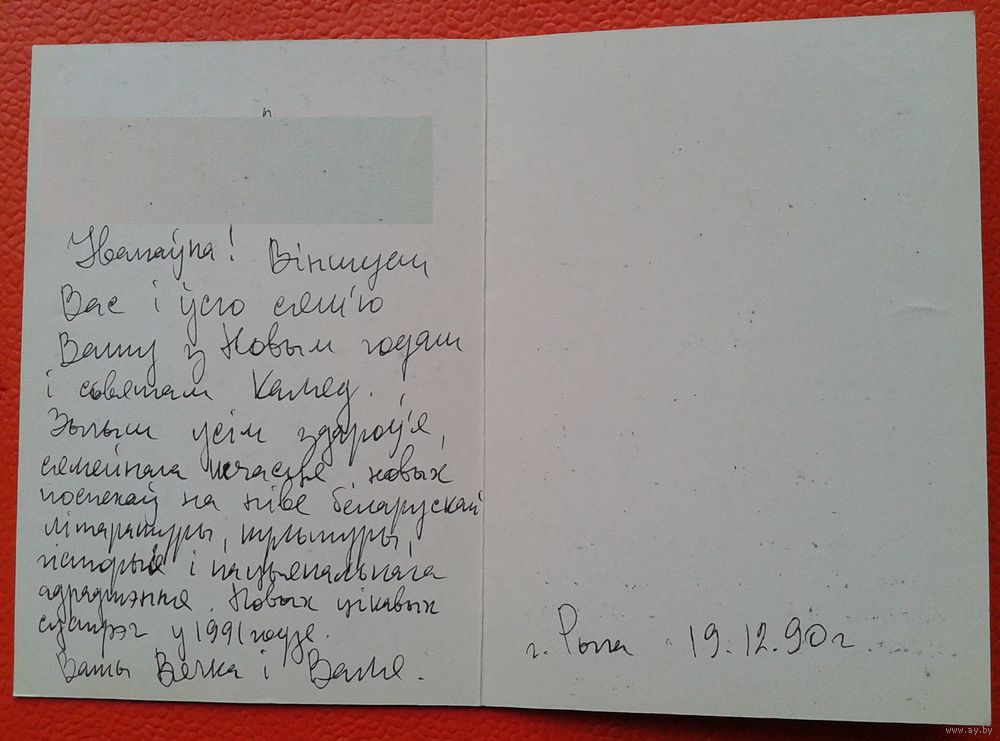 Віншуем
Вас і ўсю сям'ю
Вашу з Новым годам
і святам Каляд.
Зычым усім здароў'я,
сямейнага шчасця, новых
поспехаў на ніве беларускай
літаратуры, культуры,
гісторыі і нацыянальнага
адраджэння. Новых цікавых
сустрэч у 1991 годзе.
Вашы Вечка і Валя.
г. 19.12.90г.
www.ay.by